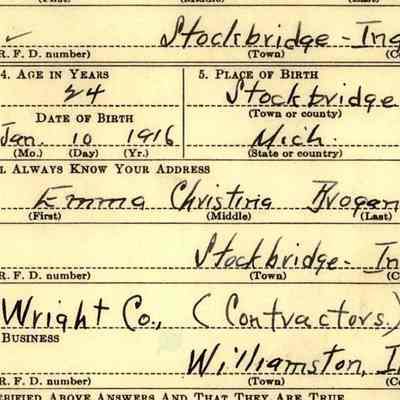 Stockbridge - Ing
R. F. D. number) (Town) (C
4. AGE IN YEARS 5. PLACE OF BIRTH
24 Stockbridge
(Town or county)
DATE OF BIRTH
Jan. 10 1916 Mich.
(Mo.) (Day) (Yr.) (State or country)
L ALWAYS KNOW YOUR ADDRESS
Emma Christina Brogan
(First) (Middle) (Last)
Stockbridge - In
R. F. D. number) (Town) (C
Wright Co., (Contractors.)
BUSINESS
Williamston, I
(Town) (C
ERIFIED ABOVE ANSWERS AND THAT THEY ARE TRUE